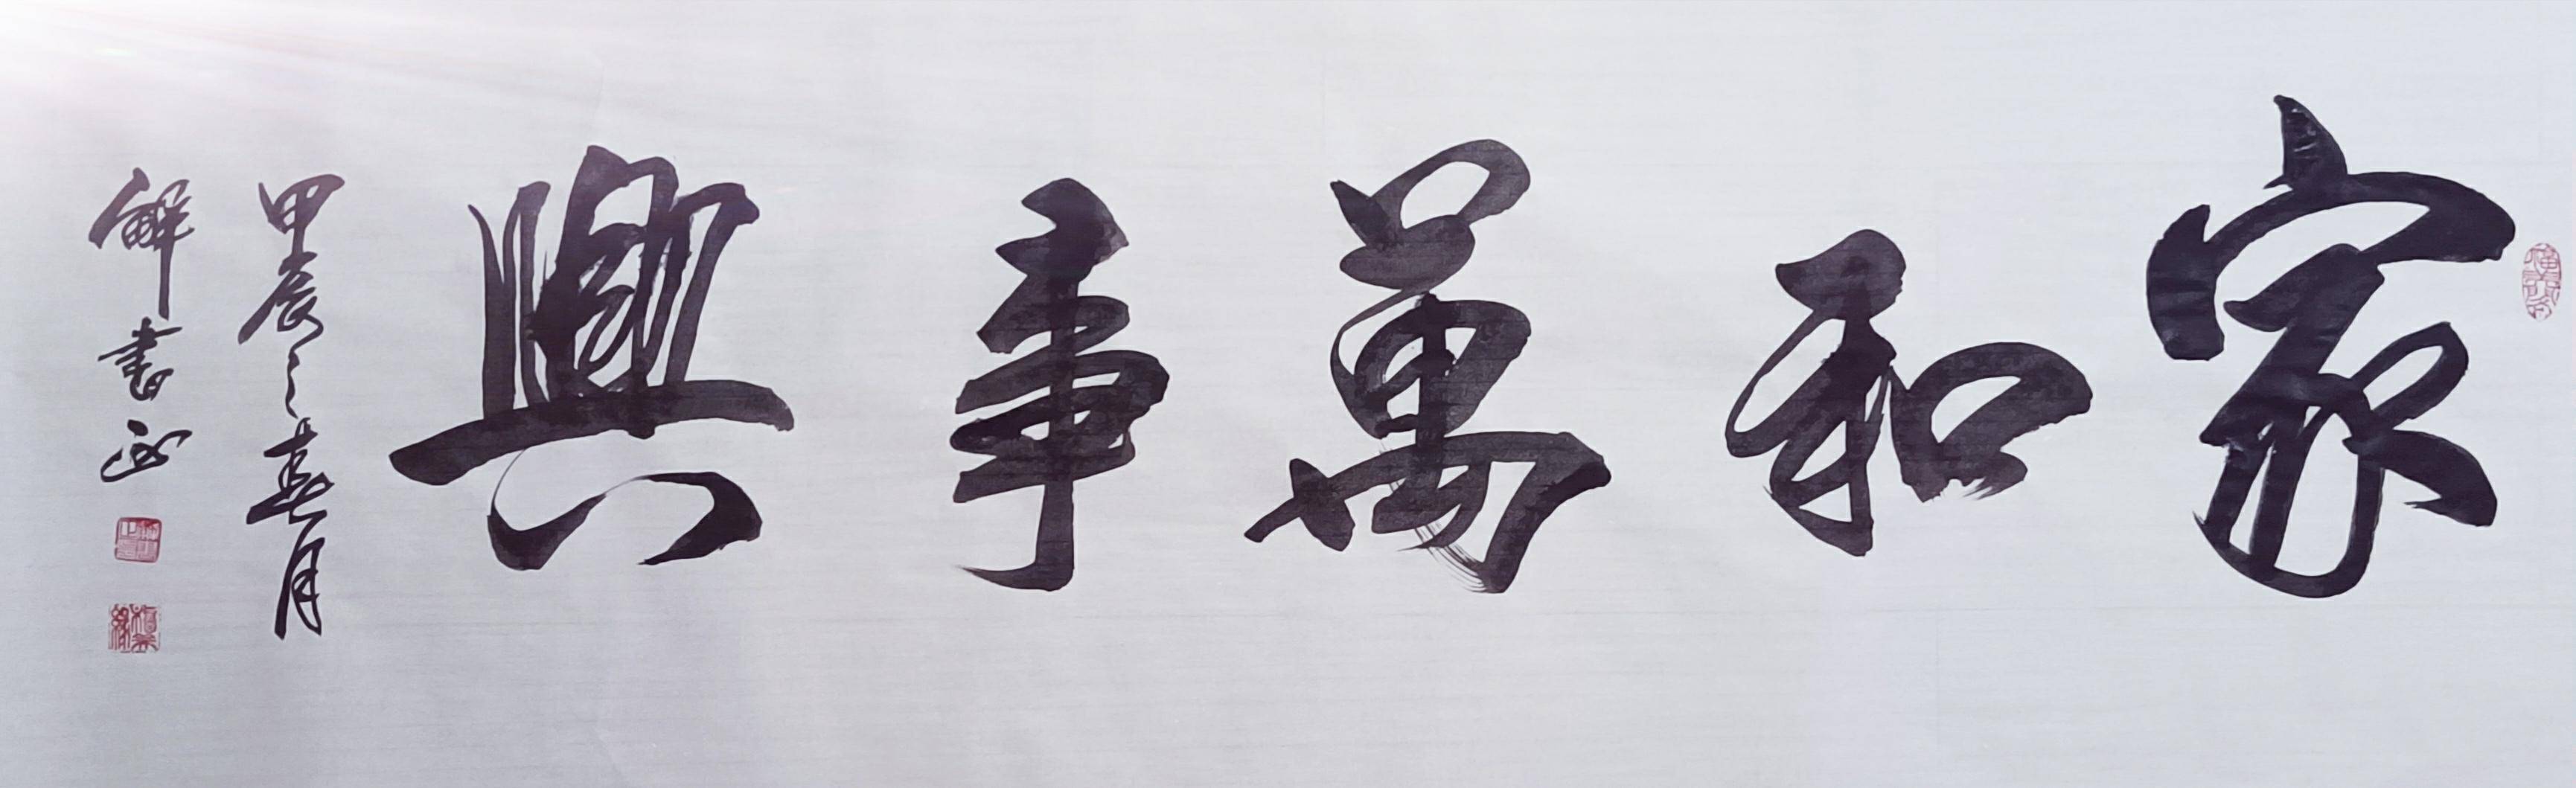 家和萬事興
甲辰之春月
解書